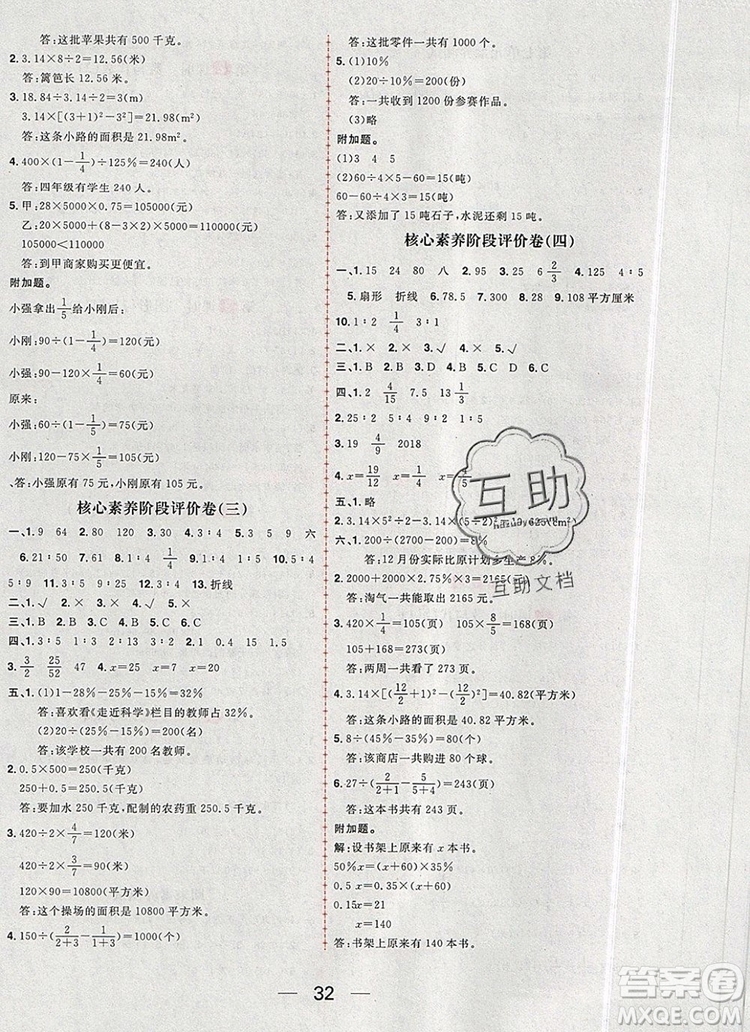 答：这批苹果共有 500 千克。
2. 3.14×8÷2=12.56(米)
答：篱笆长 12.56 米。
3. 18.84÷3.14÷2=3(m)
3.14×[(3+1)²-3²]=21.98(m²)
答：这条小路的面积是 21.98m²。
4. 400×(1-1/4)÷125%=240(人)
答：四年级有学生 240 人。
5. 甲：28×5000×0.75=105000(元)
乙：20×5000+(8-3×2)×5000=110000(元)
105000<110000
答：到甲商家购买更便宜。
附加题。
小强拿出1/5给小刚后：
小刚：90÷(1-1/4)=120(元)
小强：90-120×1/4=60(元)
原来：
小强：60÷(1-1/5)=75(元)
小刚：120-75×1/5=105(元)
答：小强原有 75 元，小刚原有 105 元。
核心素养阶段评价卷(三)
6. 21.5 11 7. 8. 9. 5 10. 15:8 11. 25:16
12. 31.4 13. 折线
二、1. √ 2. × 3. × 4. √ 5. ×
三、1. B 2. B 3. B 4. A 5. C
四、1. 3:5 1:1 3:2 2:13 2:3 2. 略
3. 3/2 25/52 4. x=15 x=7 x=1
五、1. (1)1-28%-25%-15%=32%
答：喜欢看《走近科学》栏目的教师占 32%。
(2)20÷(25%-15%)=200(名)
答：该学校一共有 200 名教师。
2. 0.5×500=250(千克)
250+0.5=250.5(千克)
答：要加水 250 千克，配制的农药重 250.5 千克。
3. 420÷2×4/7=120(米)
420÷2×3/7=90(米)
120×90=10800(平方米)
答：这个操场的面积是 10800 平方米。
4. 150÷(2/(2+3)-1/(1+3))=1000(个)
答：这批零件一共有 1000 个。
5. (1)10%
(2)20÷10%=200(份)
答：一共收到 1200 份参赛作品。
(3)略
附加题。
(1)3 4 5
(2)60÷4×5-60=15(吨)
60-60÷4×3=15(吨)
答：又添加了 15 吨石子，水泥还剩 15 吨。
核心素养阶段评价卷(四)
一、1. 15 24 80 八 2. 95 3. 25 6 2/3 4. 126 4:5
5. 扇形 折线 6. 78.5 7. 120 8. 20% 9. 108 平方厘米
10. 1:2 1/4 3:1
二、1. × 2. × 3. × 4. × 5. √
三、1. B 2. C 3. B 4. C 5. D
四、1. 2 4/15 7.5 13 1/3
2. 25:2 5:4 9:2 1:5
3. 19 4/9 2018
4. x=19/12 x=4 x=15
五、1. 略
六、1. 200÷(2700-200)=8%
答：12 月份实际比原计划多生产 8%。
2. 2000+2000×2.75%×3=2165(元)
答：淘气一共能取出 2165 元。
3. 420×1/4=105(页) 105×8/5=168(页)
105+168=273(页)
答：两周一共看了 273 页。
4. 3.14×[(12/2+1)²-(12/2)²]=40.82(平方米)
答：这条小路的面积是 40.82 平方米。
5. 8÷(45%-35%)=80(个)
答：该商店一共购进 80 个球。
6. 27÷(2/5+2-5/5+4)=243(页)
答：这本书共有 243 页。
附加题。
解：设书架上原来有 x 本书。
50%x=(x+60)×35%
0.5x=0.35x+21
0.15x=21
x=140
答：书架上原来有 140 本书。
32
互助
互助文档
答案圈
MXQE.COM